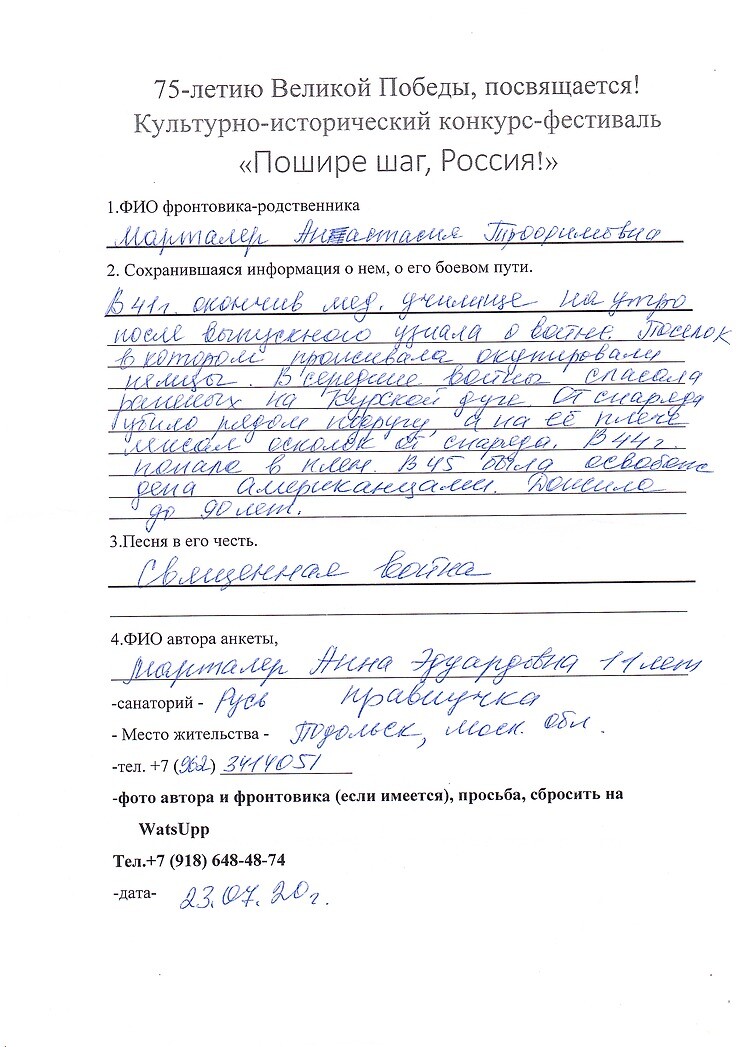 75-летию Великой Победы, посвящается!
Культурно-исторический конкурс-фестиваль
«Пошире шаг, Россия!»
1.ФИО фронтовика-родственника
Марталер Анастасия Трофимовна
2. Сохранившаяся информация о нем, о его боевом пути.
В 41 г. окончив мед. училище на утро
после выпускного узнала о войне. Поселок
в котором проживала окупировали
немцы. В середине войны спасала
раненых на Курской дуге. От снаряда
убило рядом подругу, а на её плече
висал осколок от снаряда. В 44 г.
попала в плен. В 45 была освобож
дена американцами. Дожила
до 90 лет.
3.Песня в его честь.
Священная война
4.ФИО автора анкеты,
Марталер Анна Эдуардовна 11 лет
-санаторий - Русь правнучка
- Место жительства - Подольск, Моск. обл.
-тел. +7 (962) 3414051
-фото автора и фронтовика (если имеется), просьба, сбросить на
WatsUpp
Тел.+7 (918) 648-48-74
-дата- 23.07.20 г.